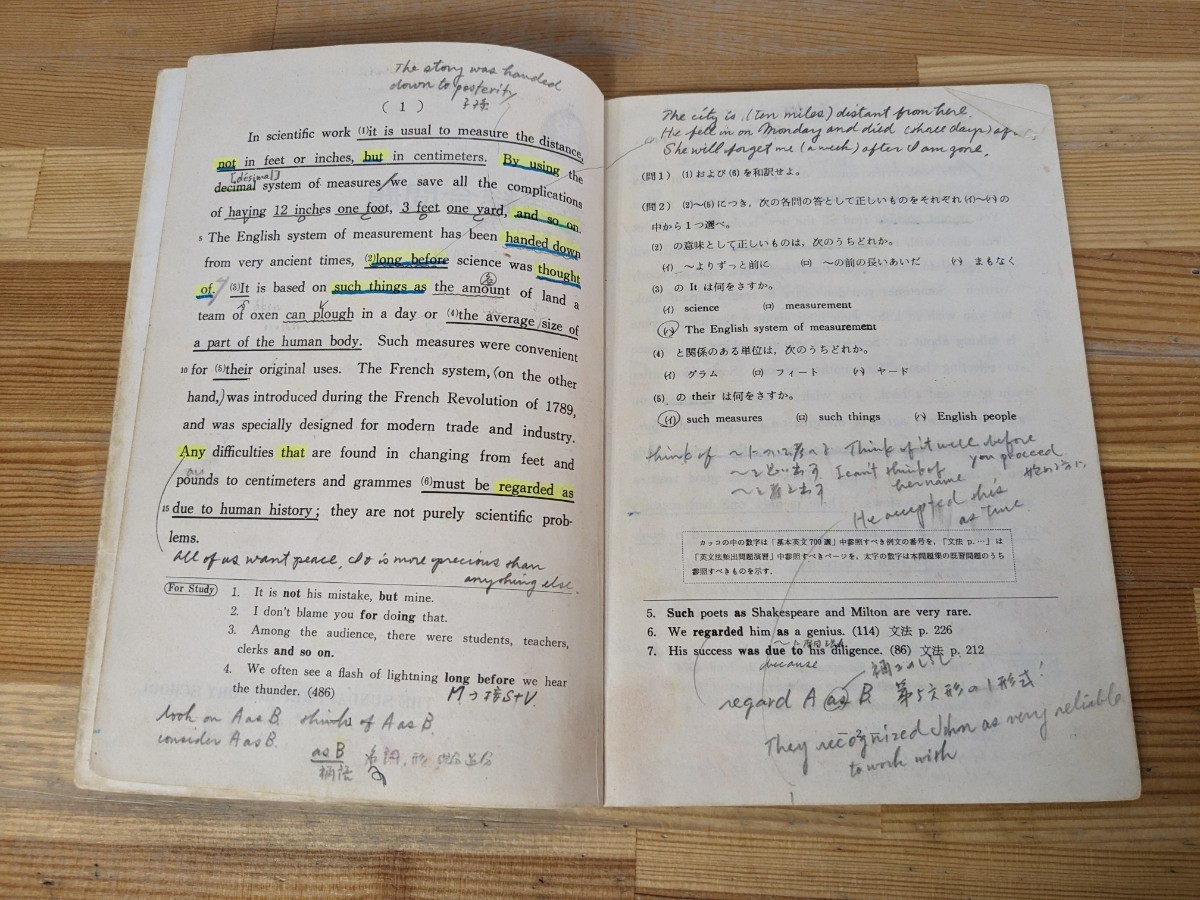 The story was handed
down to posterity
( 1 )
In scientific work (1)it is usual to measure the distance,
not in feet or inches, but in centimeters. By using the
[désimal]
decimal system of measures we save all the complications
of having 12 inches one foot, 3 feet one yard, and so on.
5 The English system of measurement has been handed down
from very ancient times, (2)long before science was thought
of. (3)It is based on such things as the amount of land a
team of oxen can plough in a day or (4)the average size of
a part of the human body. Such measures were convenient
10 for (5)their original uses. The French system, (on the other
hand,) was introduced during the French Revolution of 1789,
and was specially designed for modern trade and industry.
Any difficulties that are found in changing from feet and
pounds to centimeters and grammes (6)must be regarded as
15 due to human history; they are not purely scientific prob-
lems.
All of us want peace, is more precious than
anything else.
For Study 1. It is not his mistake, but mine.
2. I don't blame you for doing that.
3. Among the audience, there were students, teachers,
clerks and so on.
4. We often see a flash of lightning long before we hear
the thunder. (486)
M→接S+V.
look on A as B. think of A as B.
consider A as B.
as B 名詞, 形
補語
The city is (ten miles) distant from here.
He fell in on Monday and died (three days)
She will forget me (a week) after I am gone.
(問1) (1)および(6)を和訳せよ。
(問2) (2)〜(5)につき，次の各問の答として正しいものをそれぞれ(イ)〜(ハ)の
中から1つ選べ。
(2) の意味として正しいものは，次のうちどれか。
(イ) 〜よりずっと前に (ロ) 〜の前の長いあいだ (ハ) まもなく
(3) の It は何をさすか。
(イ) science (ロ) measurement
(ハ) The English system of measurement
(4) と関係のある単位は，次のうちどれか。
(イ) グラム (ロ) フィート (ハ) ヤード
(5) の their は何をさすか。
(イ) such measures (ロ) such things (ハ) English people
think of 〜について考へる Think of it well before
you proceed
I can't think of
her name
He accepted this
as true.
カッコの中の数字は「基本英文700選」中参照すべき例文の番号を，「文法 p.…」は
「英文法頻出問題演習」中参照すべきページを，太字の数字は本問題集の既習問題のうち
参照すべきものを示す．
5. Such poets as Shakespeare and Milton are very rare.
6. We regarded him as a genius. (114) 文法 p. 226
7. His success was due to his diligence. (86) 文法 p. 212
because
regard A as B 第5文形の1形式!
— 2 —
They recognized John as very reliable
to work with